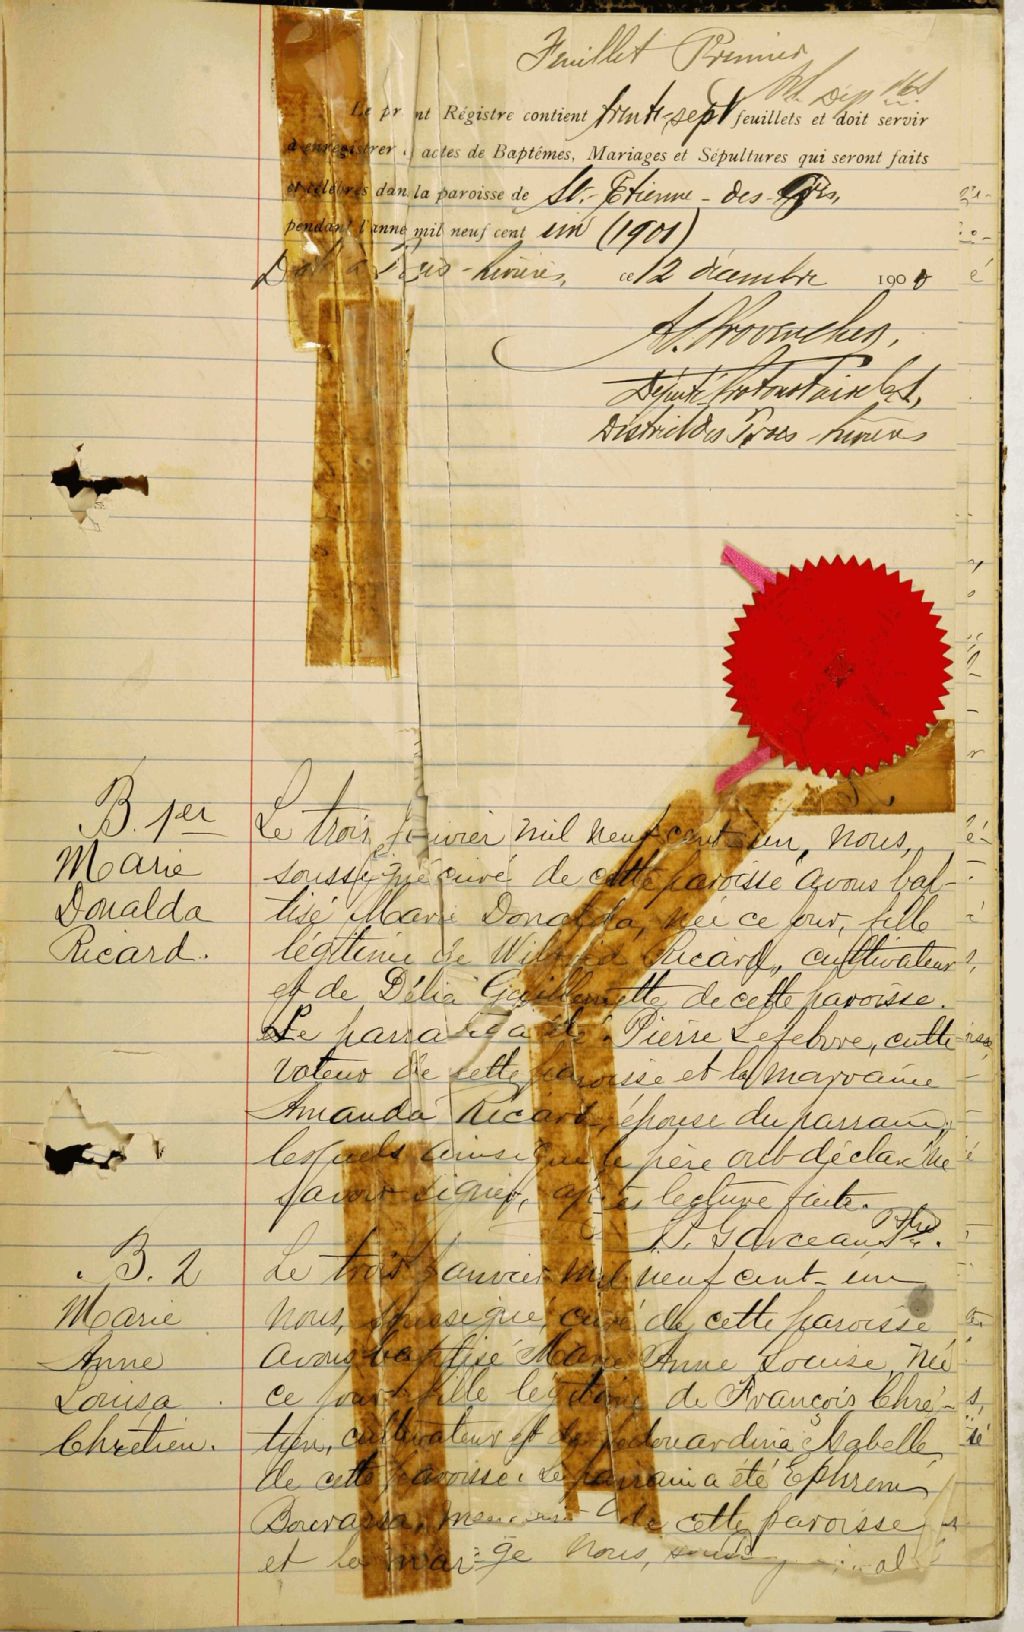 Feuillet Premier
Le pr nt Régistre contient trente-sept feuillets et doit servir
à enrégistrer actes de Baptêmes, Mariages et Sépultures qui seront faits
et célébrés dan la paroisse de St.-Etienne-des-Grès,
pendant l'anné mil neuf cent un (1901)
Trois-Rivières, ce 12 décembre 1900
A. Provencher,
Député Protonotaire
District des Trois-Rivières
B. 1er
Marie
Donalda
Ricard.
Le trois janvier mil neuf cent-un, nous,
soussigné curé de cette paroisse avons bap-
tisé Marie Donalda, née ce jour, fille
légitime de Wilfrid Ricard, cultivateur
et de Délia Guillemette de cette paroisse.
Le parrain a été Pierre Lefebvre, culti-
vateur de cette paroisse et la marraine
Amanda Ricard, épouse du parrain,
lesquels ainsi que le père ont déclaré ne
savoir signer, après lecture faite.
Garceau Ptre.
B. 2
Marie
Anne
Louisa
Chrétien.
Le trois janvier mil neuf cent-un
nous, soussigné, curé de cette paroisse
avons baptisé Marie Anne Louise, née
ce jour fille légitime de François Chré-
tien, cultivateur et de Edouardina Isabelle
de cette paroisse. Le parrain a été Ephrem
Bourassa, de cette paroisse
et la nous,